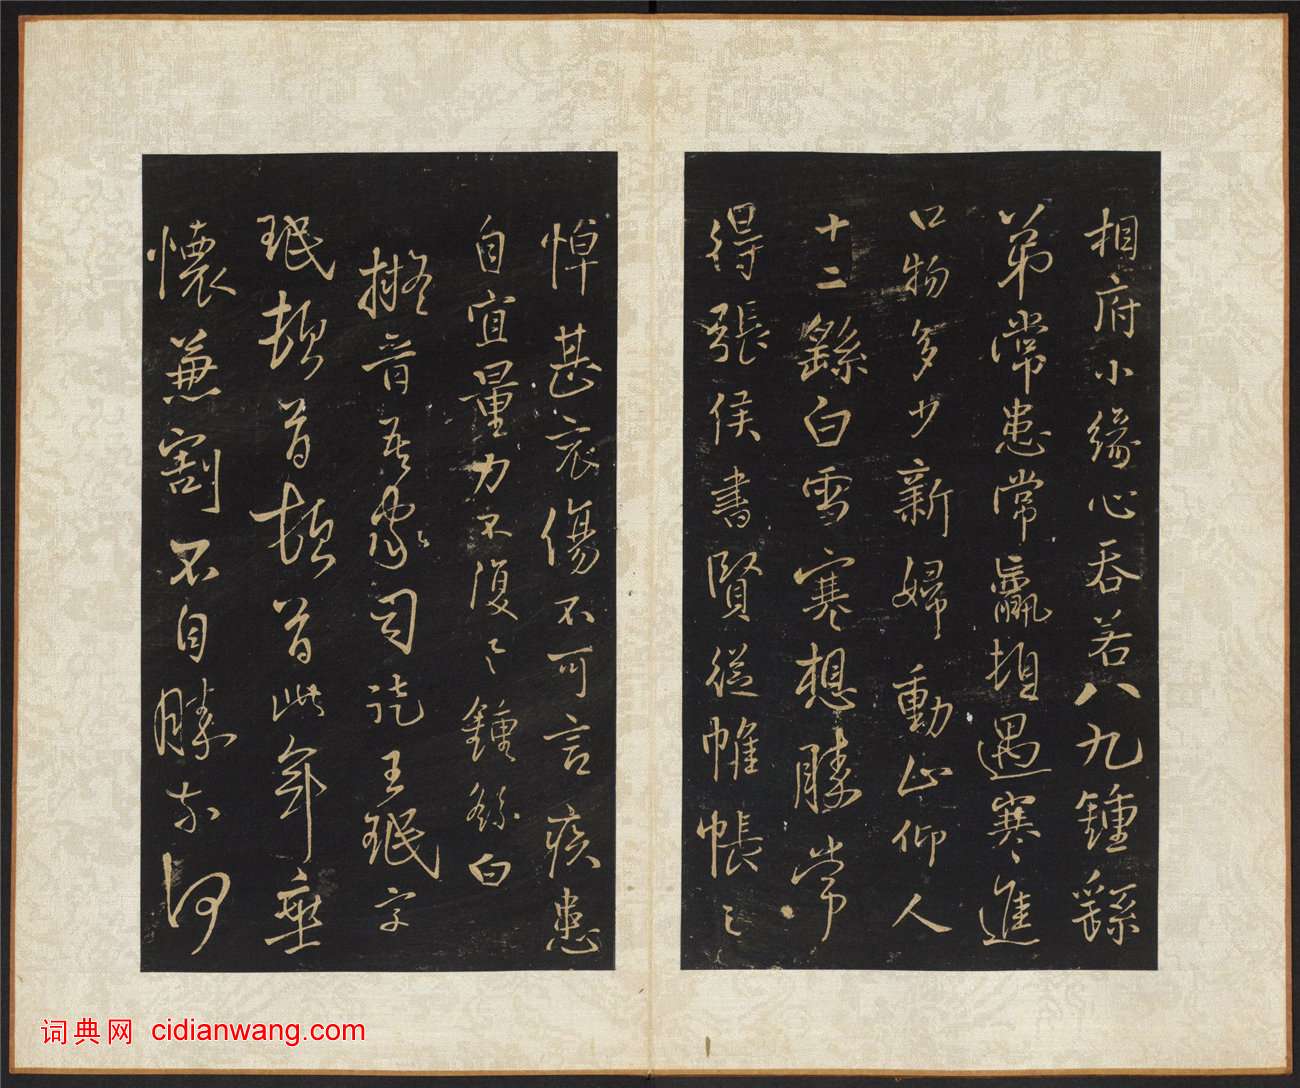 相府小緣心吞若八九鍾繇
弟常患常羸頓遇寒進
口物多少新婦動止仰人
十二繇白雪寒想勝常
得張侯書賢從帷帳之
悼甚哀傷不可言疾患
自宜量力不復〻鍾繇白
擬晉吾家司徒王珉字
珉頓首頓首此年垂
懷兼割不自勝奈何
词典网 cidianwang.com